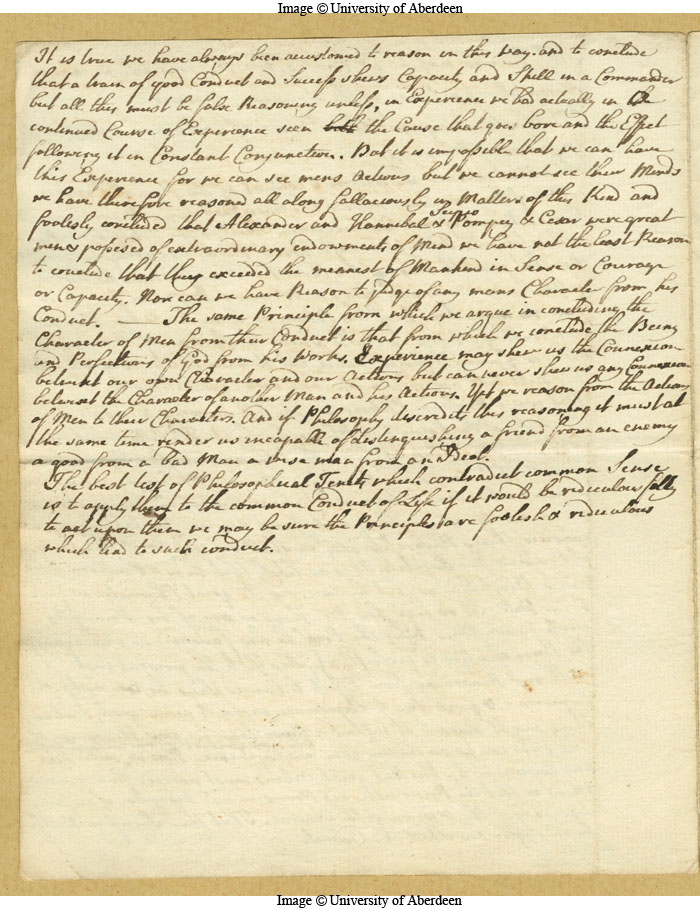 Image © University of Aberdeen
It is true we have always been accustomed to reason in this way. and to conclude
that a train of good Conduct and Success shews Capacity and Skill in a Commander
but all this must be false Reasoning unless, in Experience we had actually in the
continued Course of Experience seen both the Cause that goes before and the Effect
following it in Constant Conjunction. But it is impossible that we can have
this Experience for we can see mens Actions but we cannot see their Minds
we have therefore reasond all along fallaciously in Matters of this Kind and
foolishly concluded that Alexander and Hannibal & Scipio Pompey & Cesar were great
men & possessed of extraordinary indowments of Mind we have not the least Reason
to conclude that they exceeded the meanest of Mankind in Sense or Courage
or Capacity. Nor can we have Reason to judge of any mans Character from his
Conduct. — The same Principle from which we argue in concluding the
Character of Men from their Conduct is that from which we conclude the Being
and Perfections of God from his Works. Experience may shew us the Connexion
betwixt our own Character and our Actions but can never shew us any Connexion
betwixt the Character of another Man and his Actions. Yet we reason from the Actions
of Men to their Characters. And if Philosophy discredits this reasoning it must at
the same time render us incapable of distinguishing a friend from an enemy
a good from a bad Man a wise man from an Ideot.
The best test of Philosophical Tenets which contradict common Sense
is to apply them to the common Conduct of Life if it would be ridiculous folly
to act upon them we may be sure the Principles are foolish & ridiculous
which lead to such conduct.
Image © University of Aberdeen